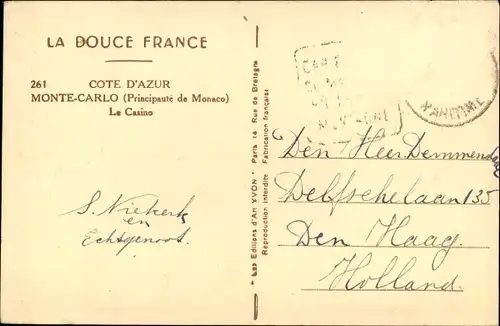 LA DOUCE FRANCE
261 COTE D'AZUR
MONTE-CARLO (Principauté de Monaco)
Le Casino
S. Niekerk
en
Echtgenoot.
"Les Editions d'Art YVON" Paris 14 Rue de Bretagne
Reproduction interdite Fabrication française
MARITIME
Den Heer Demmendaal
Delfschelaan 135
Den Haag.
Holland.